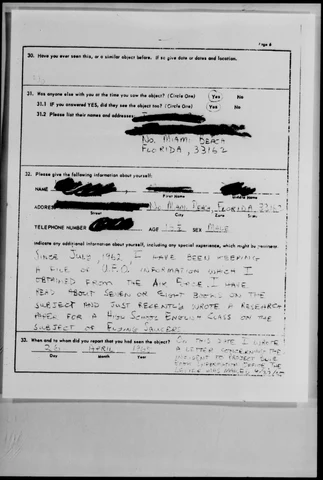 Page 6
30. Have you ever seen this, or a similar object before. If so give date or dates and location.
31. Was anyone else with you at the time you saw the object? (Circle One) Yes No
31.1 IF you answered YES, did they see the object too? (Circle One) Yes No
31.2 Please list their names and addresses:
NO. MIAMI BEACH
FLORIDA, 33162
32. Please give the following information about yourself:
NAME
First Name Middle Name
ADDRESS NO. MIAMI BEACH, FLORIDA 33162
Street City Zone State
TELEPHONE NUMBER AGE SEX MALE
Indicate any additional information about yourself, including any special experience, which might be pertinent
SINCE JULY, 1962 I HAVE BEEN KEEPING
A FILE OF U.F.O. INFORMATION WHICH I
OBTAINED FROM THE AIR FORCE. I HAVE
READ ABOUT SEVEN OR EIGHT BOOKS ON THE
SUBJECT AND JUST RECENTLY WROTE A RESEARCH
PAPER FOR A HIGH SCHOOL ENGLISH CLASS ON THE
SUBJECT OF FLYING SAUCERS
33. When and to whom did you report that you had seen the object?
APRIL
Day Month Year
ON THIS DATE I WROTE
A LETTER CONCERNING THE
INCIDENT TO PROJECT BLUE
BOOK
LETTER WAS MAILED